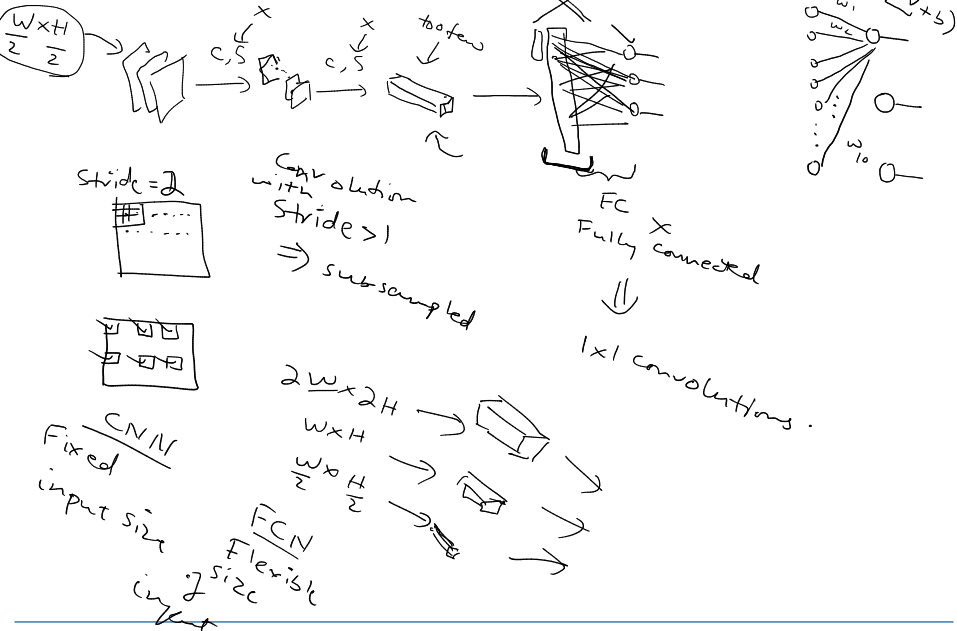 W x H
2 2
c, S
x
c, S
x
too few
w1
w2
+ b)
w10
Stride = 2
Convolution
with
Stride > 1
⇒ subsampled
FC x
Fully connected
⇓
1x1 convolutions.
2W x 2H
W x H
W/2 x H/2
CNN
Fixed
input size
FCN
Flexible
size
input